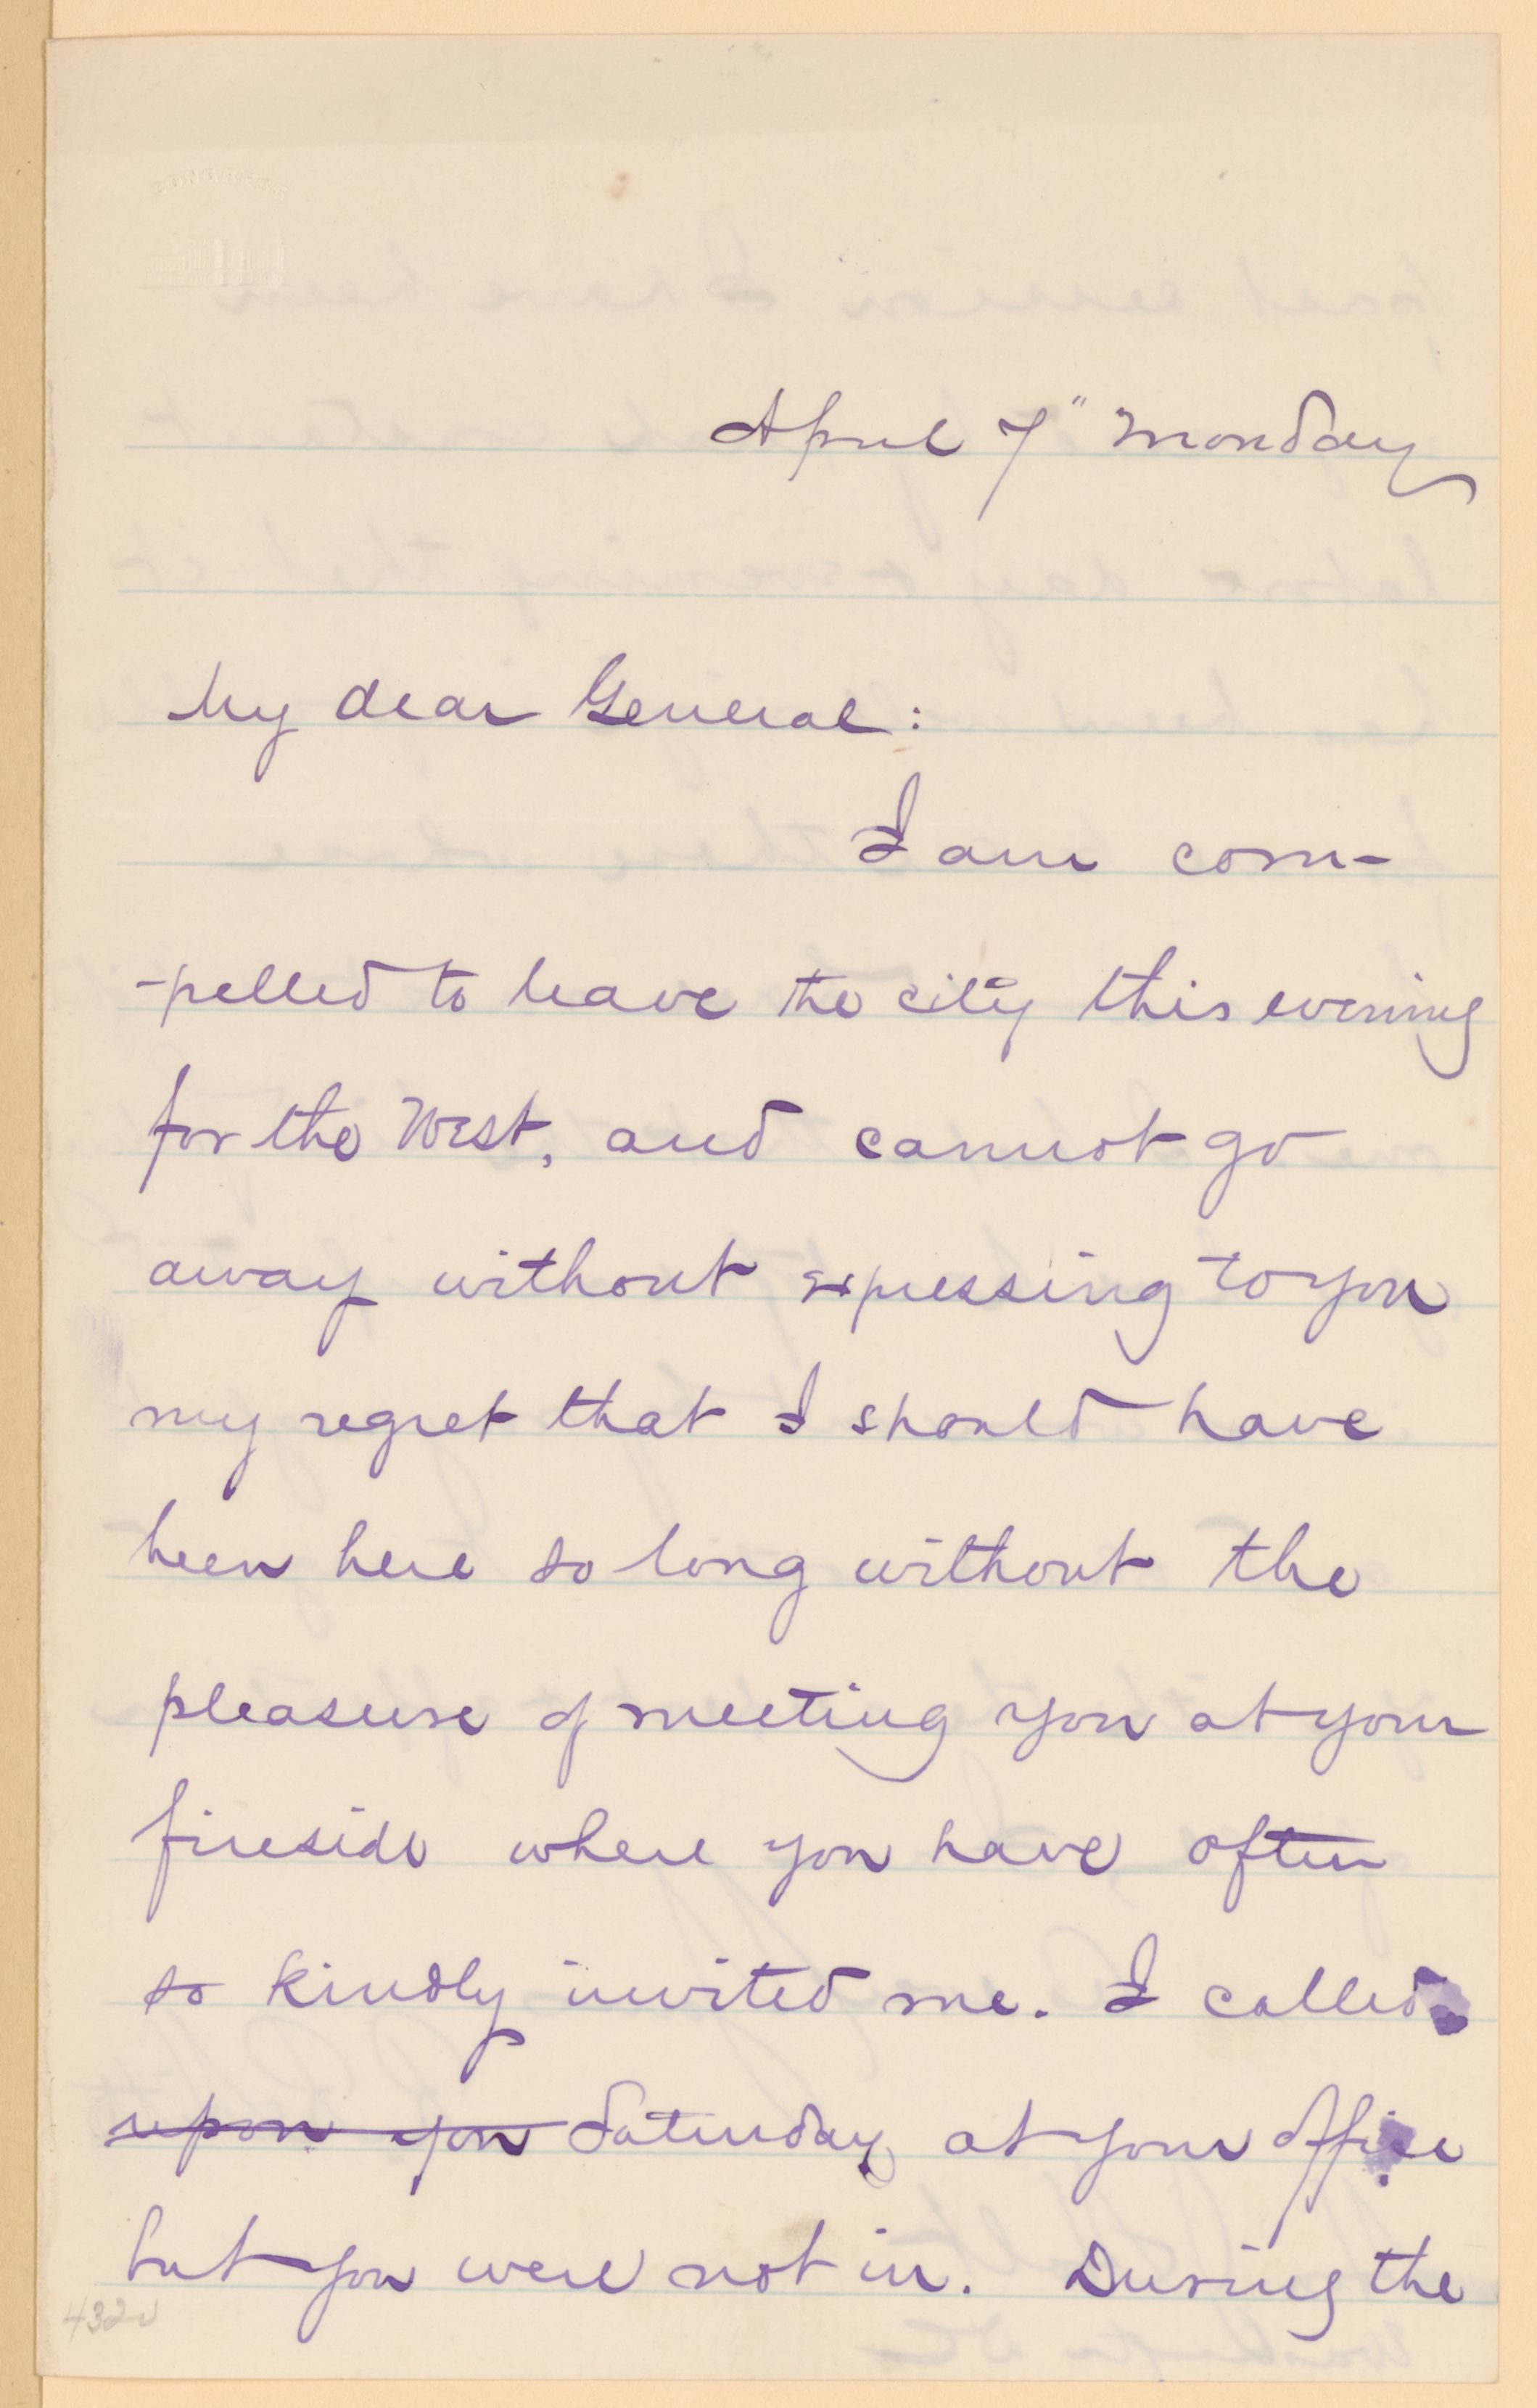 April 7" Monday
My dear General:
I am com-
-pelled to leave the city this evening
for the West, and cannot go
away without expressing to you
my regret that I should have
been here so long without the
pleasure of meeting you at your
fireside where you have often
so kindly invited me. I called
upon you Saturday at your office
but you were not in. During the